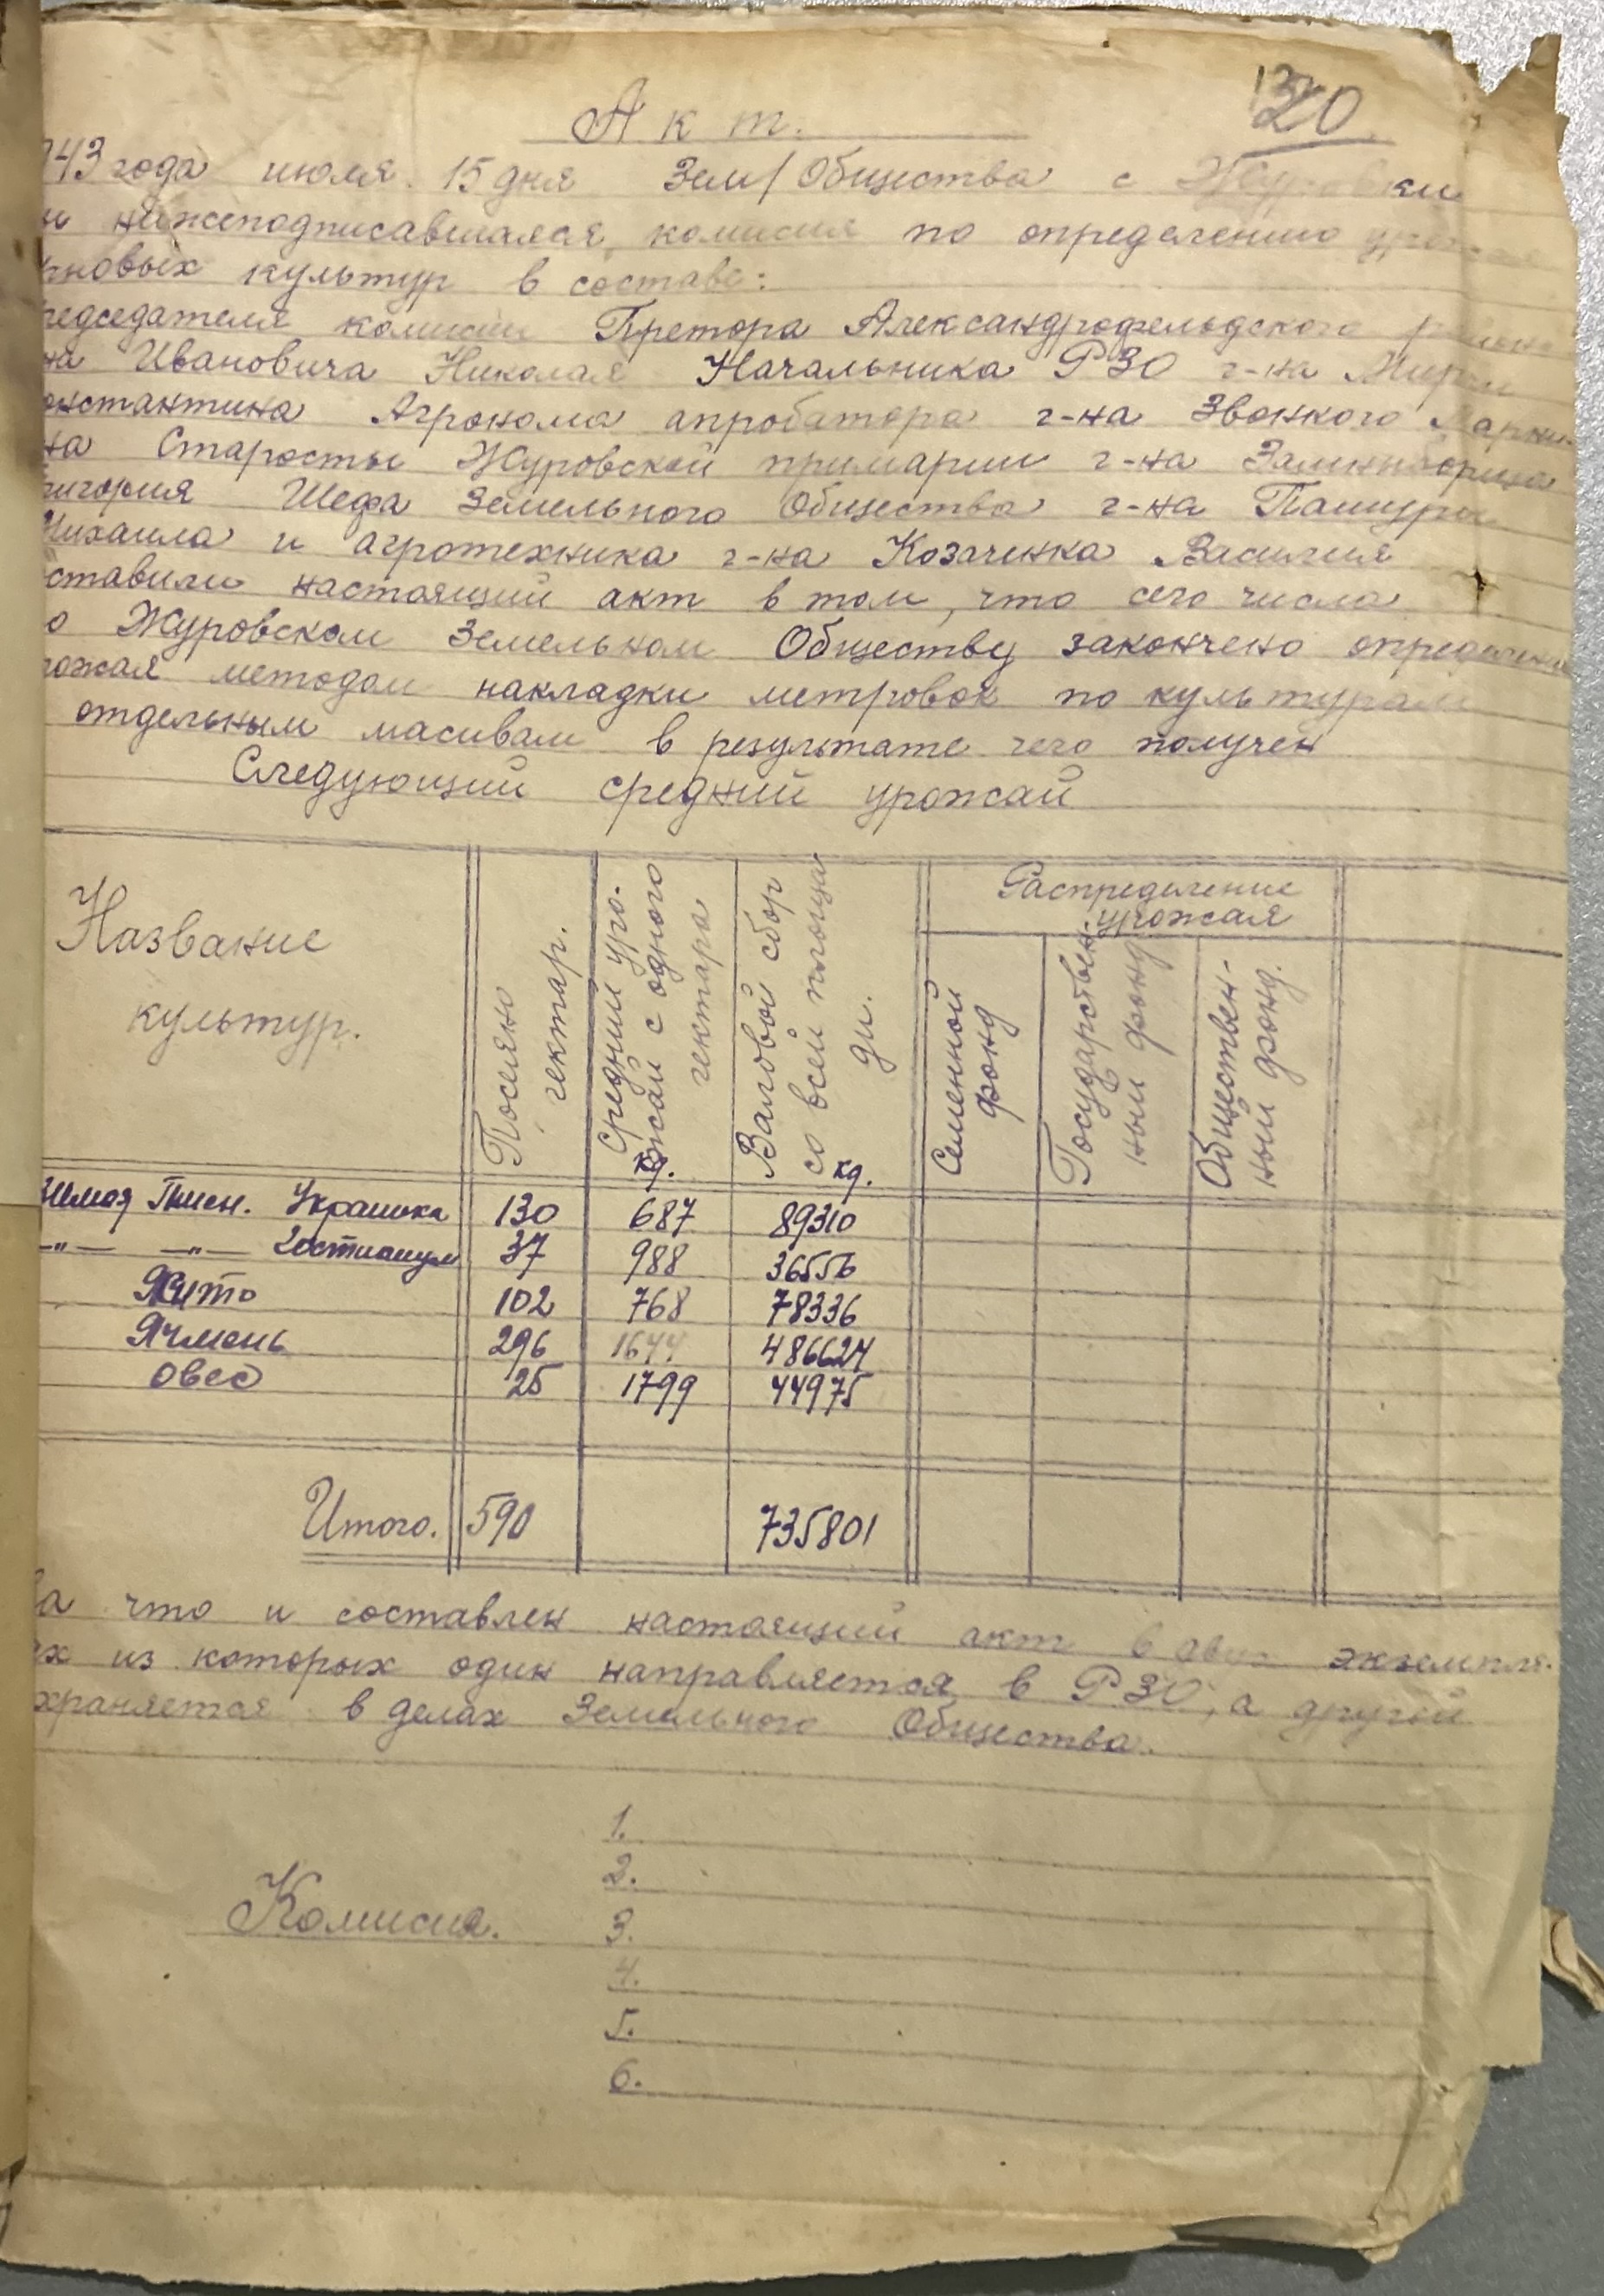 Акт.
20
943 года июля 15 дня Зем/Общества с Журовки
нижеподписавшаяся комисия по определению
рновых культур в составе:
редседателя комисии Претора Александрофельдского
на Ивановича Николая Начальника РЗО г-на
онстантина Агронома апробатора г-на Звонкого
на Старосты Журовской примарии г-на
ригория Шефа Земельного Общества г-на
Михаила и агротехника г-на Козаченка Василия
ставили настоящий акт в том, что сего числа
о Журовском Земельном Обществу закончено определение
рожая методом накладки метровок по культурам
отдельным масивам в результате чего получен
Следующий средний урожай
Название культур.
Посеяно гектар.
Средний уро-жай с одного гектара кг.
Валовой сбор со всей площади. кг.
Распределение урожая
Семенной фонд
Государствен-ный фонд
Обществен-ный фонд.
Зимоя Пшен. Украинка 130 687 89310
—"— —"— Гостианум 37 988 36556
Жито 102 768 78336
Ячмень 296 1644 486624
Овес 25 1799 44975
Итого. 590 735801
ва что и составлен настоящий акт в двух экземпля-
ях из которых один направляется в РЗО, а другой
храняется в делах Земельного Общества.
Комисия.
1.
2.
3.
4.
5.
6.